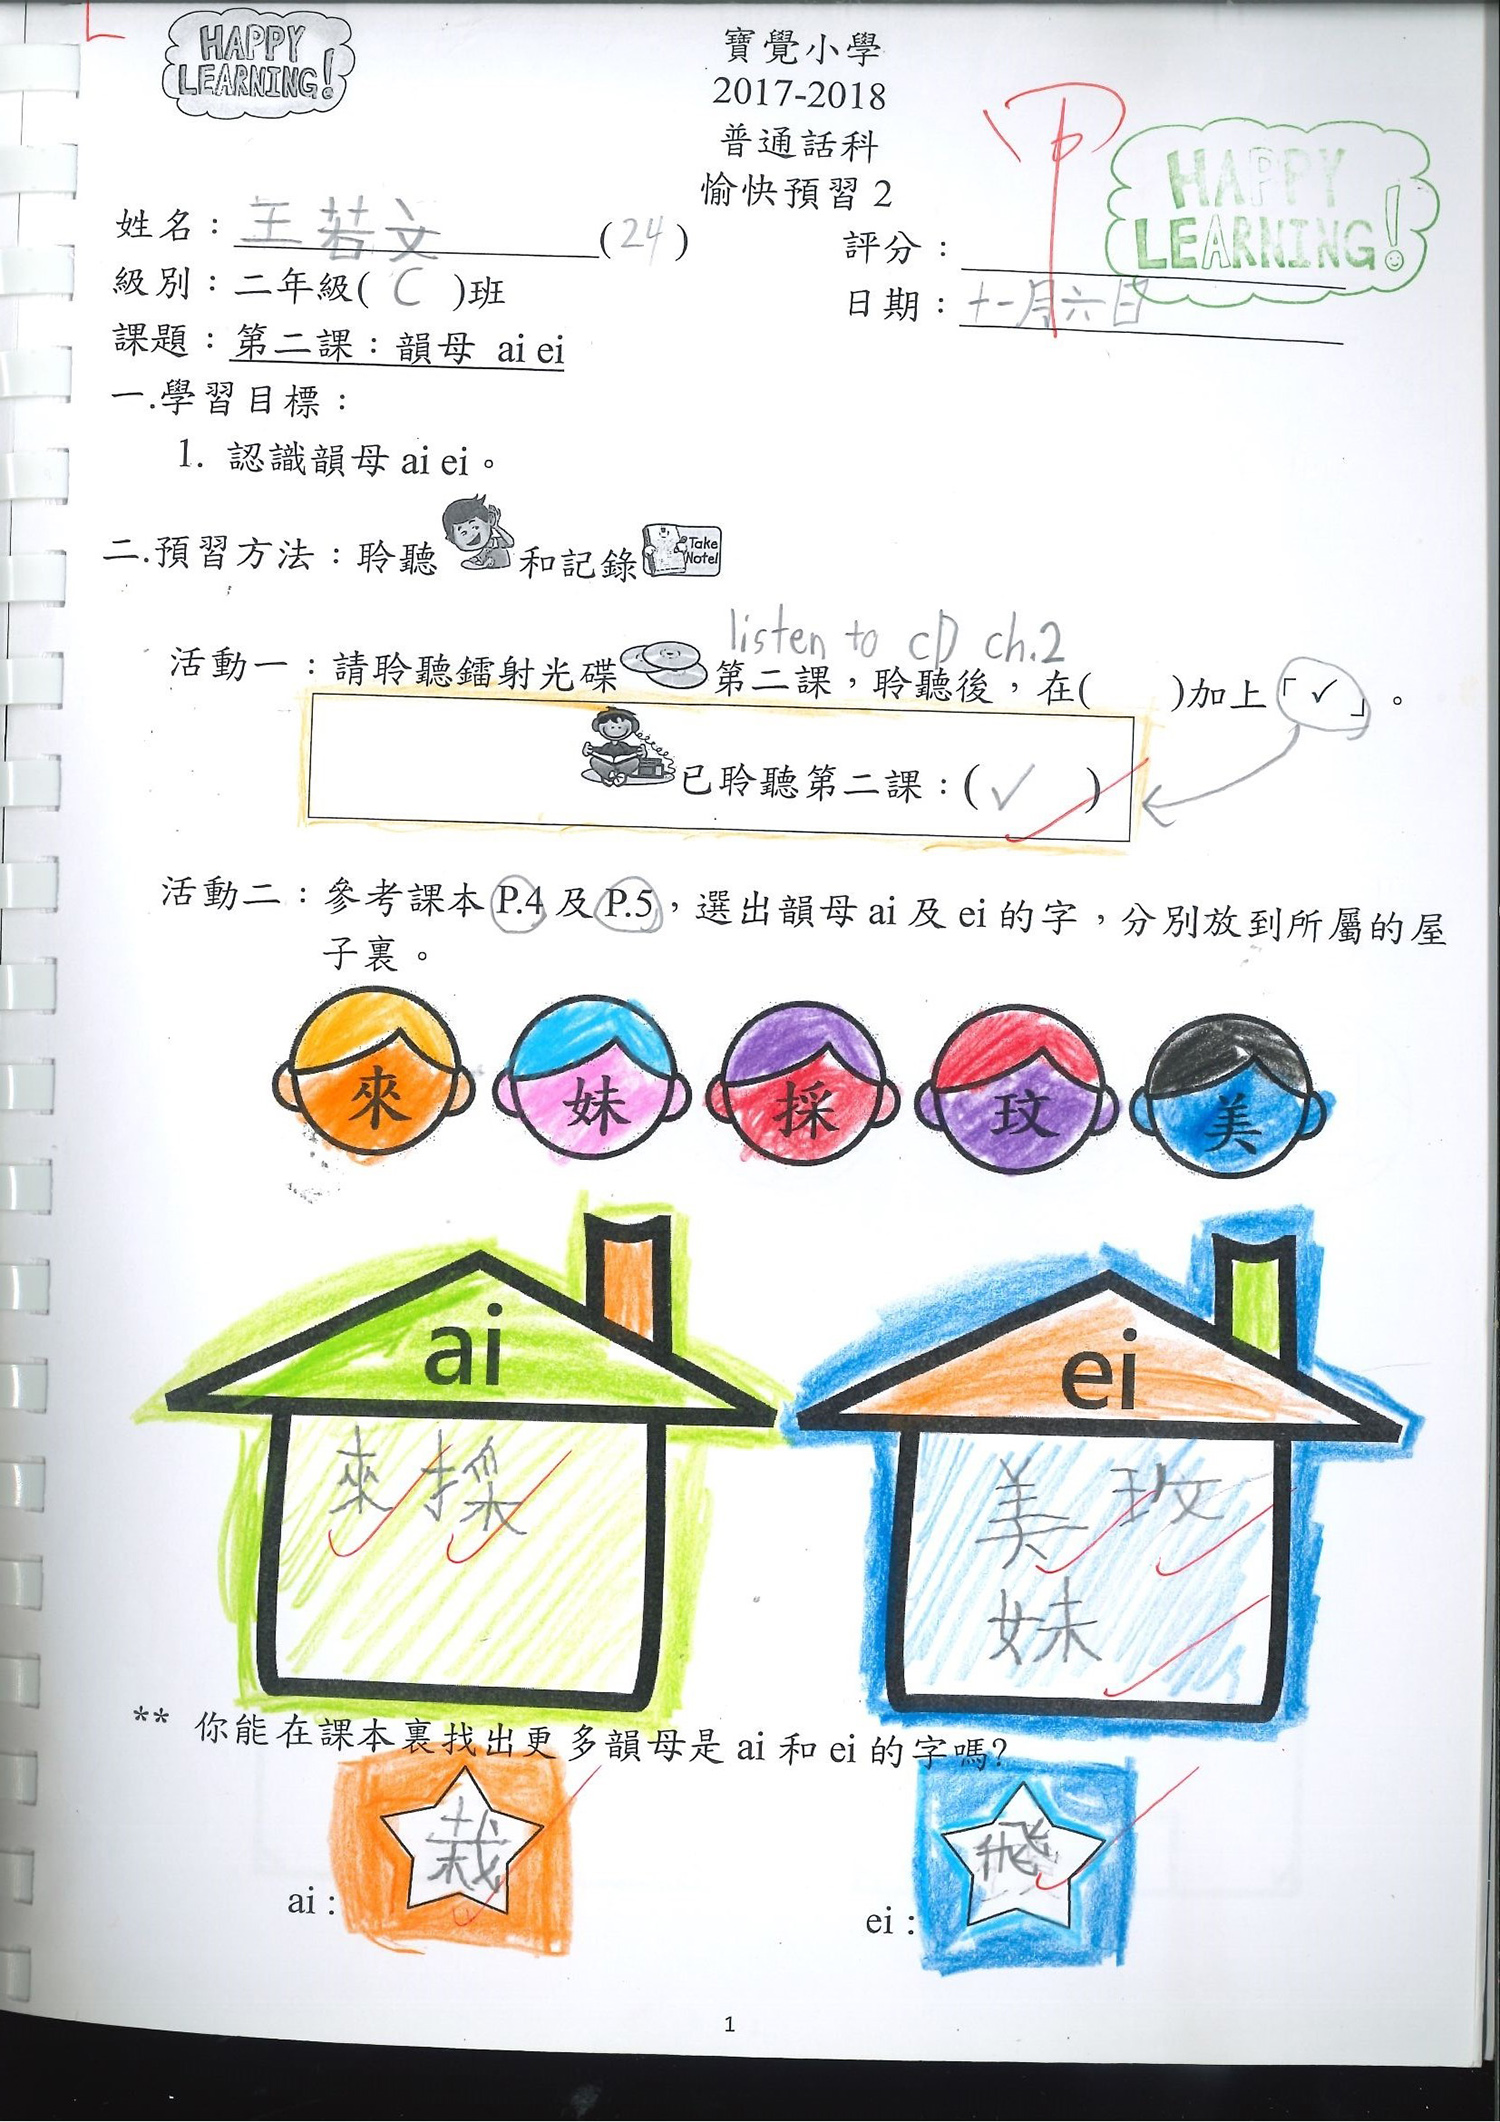 HAPPY
LEARNING!
寶覺小學
2017-2018
普通話科
愉快預習 2
甲
HAPPY
LEARNING!
姓名：王若文(24)
評分：
級別：二年級( C )班
日期：十一月六日
課題：第二課：韻母 ai ei
一.學習目標：
1. 認識韻母 ai ei。
二.預習方法：聆聽和記錄
Take
Note!
listen to CD ch.2
活動一：請聆聽鐳射光碟第二課，聆聽後，在( )加上「✓」。
已聆聽第二課：( ✓ )
活動二：參考課本 P.4 及 P.5，選出韻母 ai 及 ei 的字，分別放到所屬的屋
子裏。
來 妹 採 玟 美
ai ei
來 採
美 玫
妹
** 你能在課本裏找出更多韻母是 ai 和 ei 的字嗎?
ai： 栽
ei： 飛
1